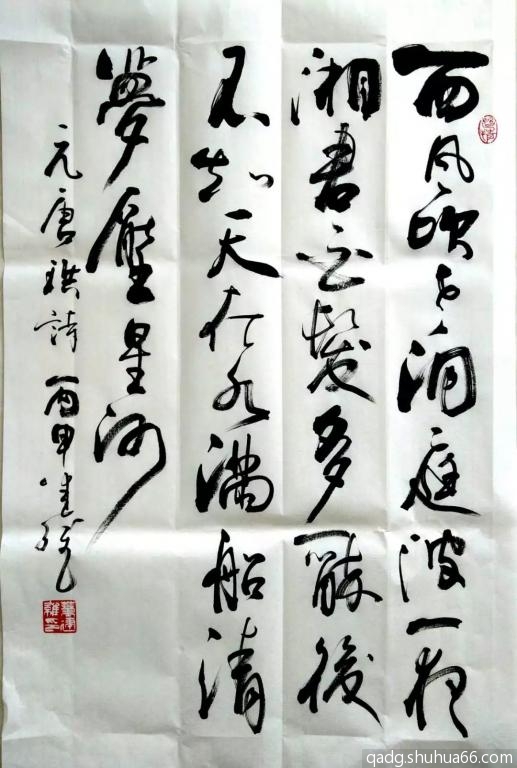 西風吹老洞庭波一夜
湘君白髮多醉後
不知天在水滿船清
夢壓星河
元唐珙詩 丙申
qadg.shuhua66.com